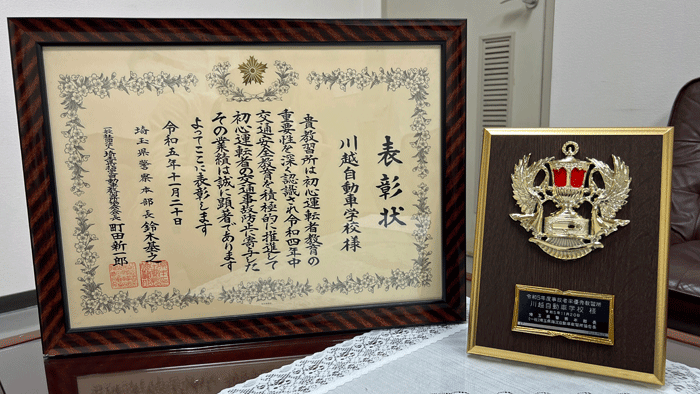 表彰状
川越自動車学校 様
貴教習所は初心運転者教育の
重要性を深く認識され令和四年中
交通安全教育を積極的に推進して
初心運転者の交通事故防止に寄与した
その業績は誠に顕著であります
よってここに表彰します
令和五年十一月二十日
埼玉県警察本部長 鈴木基之
町田新一郎
令和5年度事故率優秀教習所
川越自動車学校 様
令和5年11月20日
埼玉県警察本部長